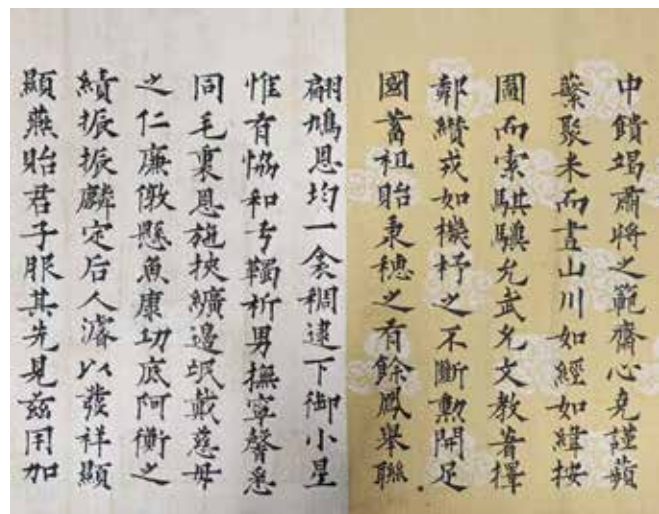 中饋竭肅將之範齋心克謹蘋
蘩聚米而畫山川如經如緯按
圖而索騏驥允武允文教著擇
鄰纘戎如機杼之不斷勲開足
國蓄租貽秉穗之有餘鳳舉聯
翩鳩恩均一衾裯逮下御小星
惟有恊和弓韣祈男撫寧馨悉
同毛裏恩施挾纊邉氓戴慈母
之仁廉儆懸魚康功底阿衡之
績振振麟定后人濬以發祥顯
顯燕貽君子服其先見兹用加